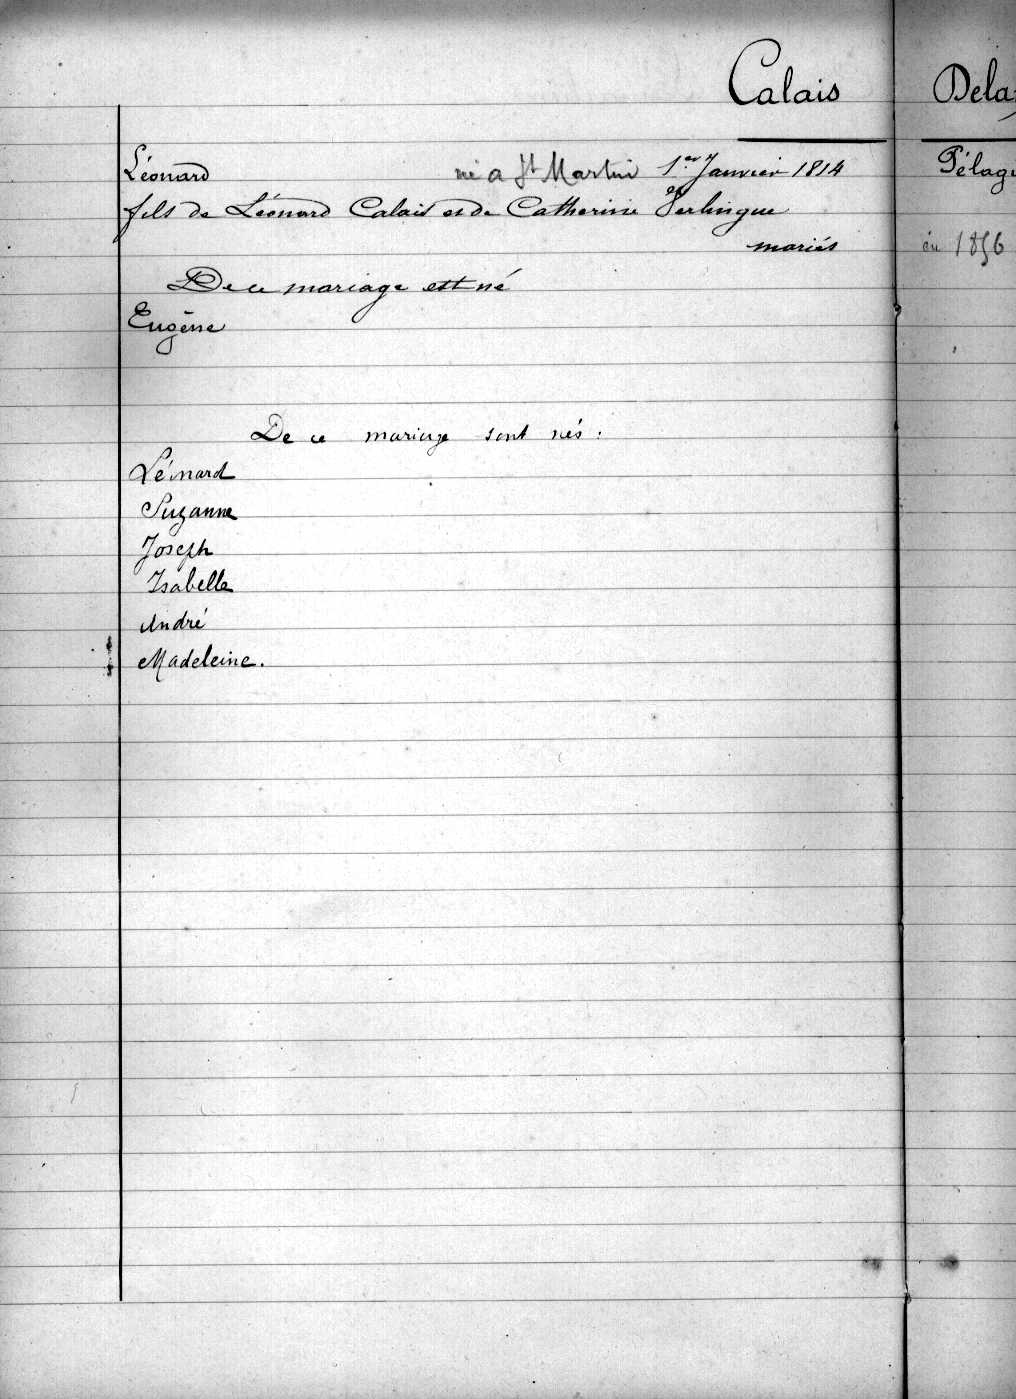 Calais
Léonard né a St Martin 1er Janvier 1814
fils de Léonard Calais et de Catherine Verlingue
et
mariés
De ce mariage est né
Eugène
De ce mariage sont nés :
Léonard
Suzanne
Joseph
Isabelle
André
Madeleine.
Dela
Pélag
en 1856